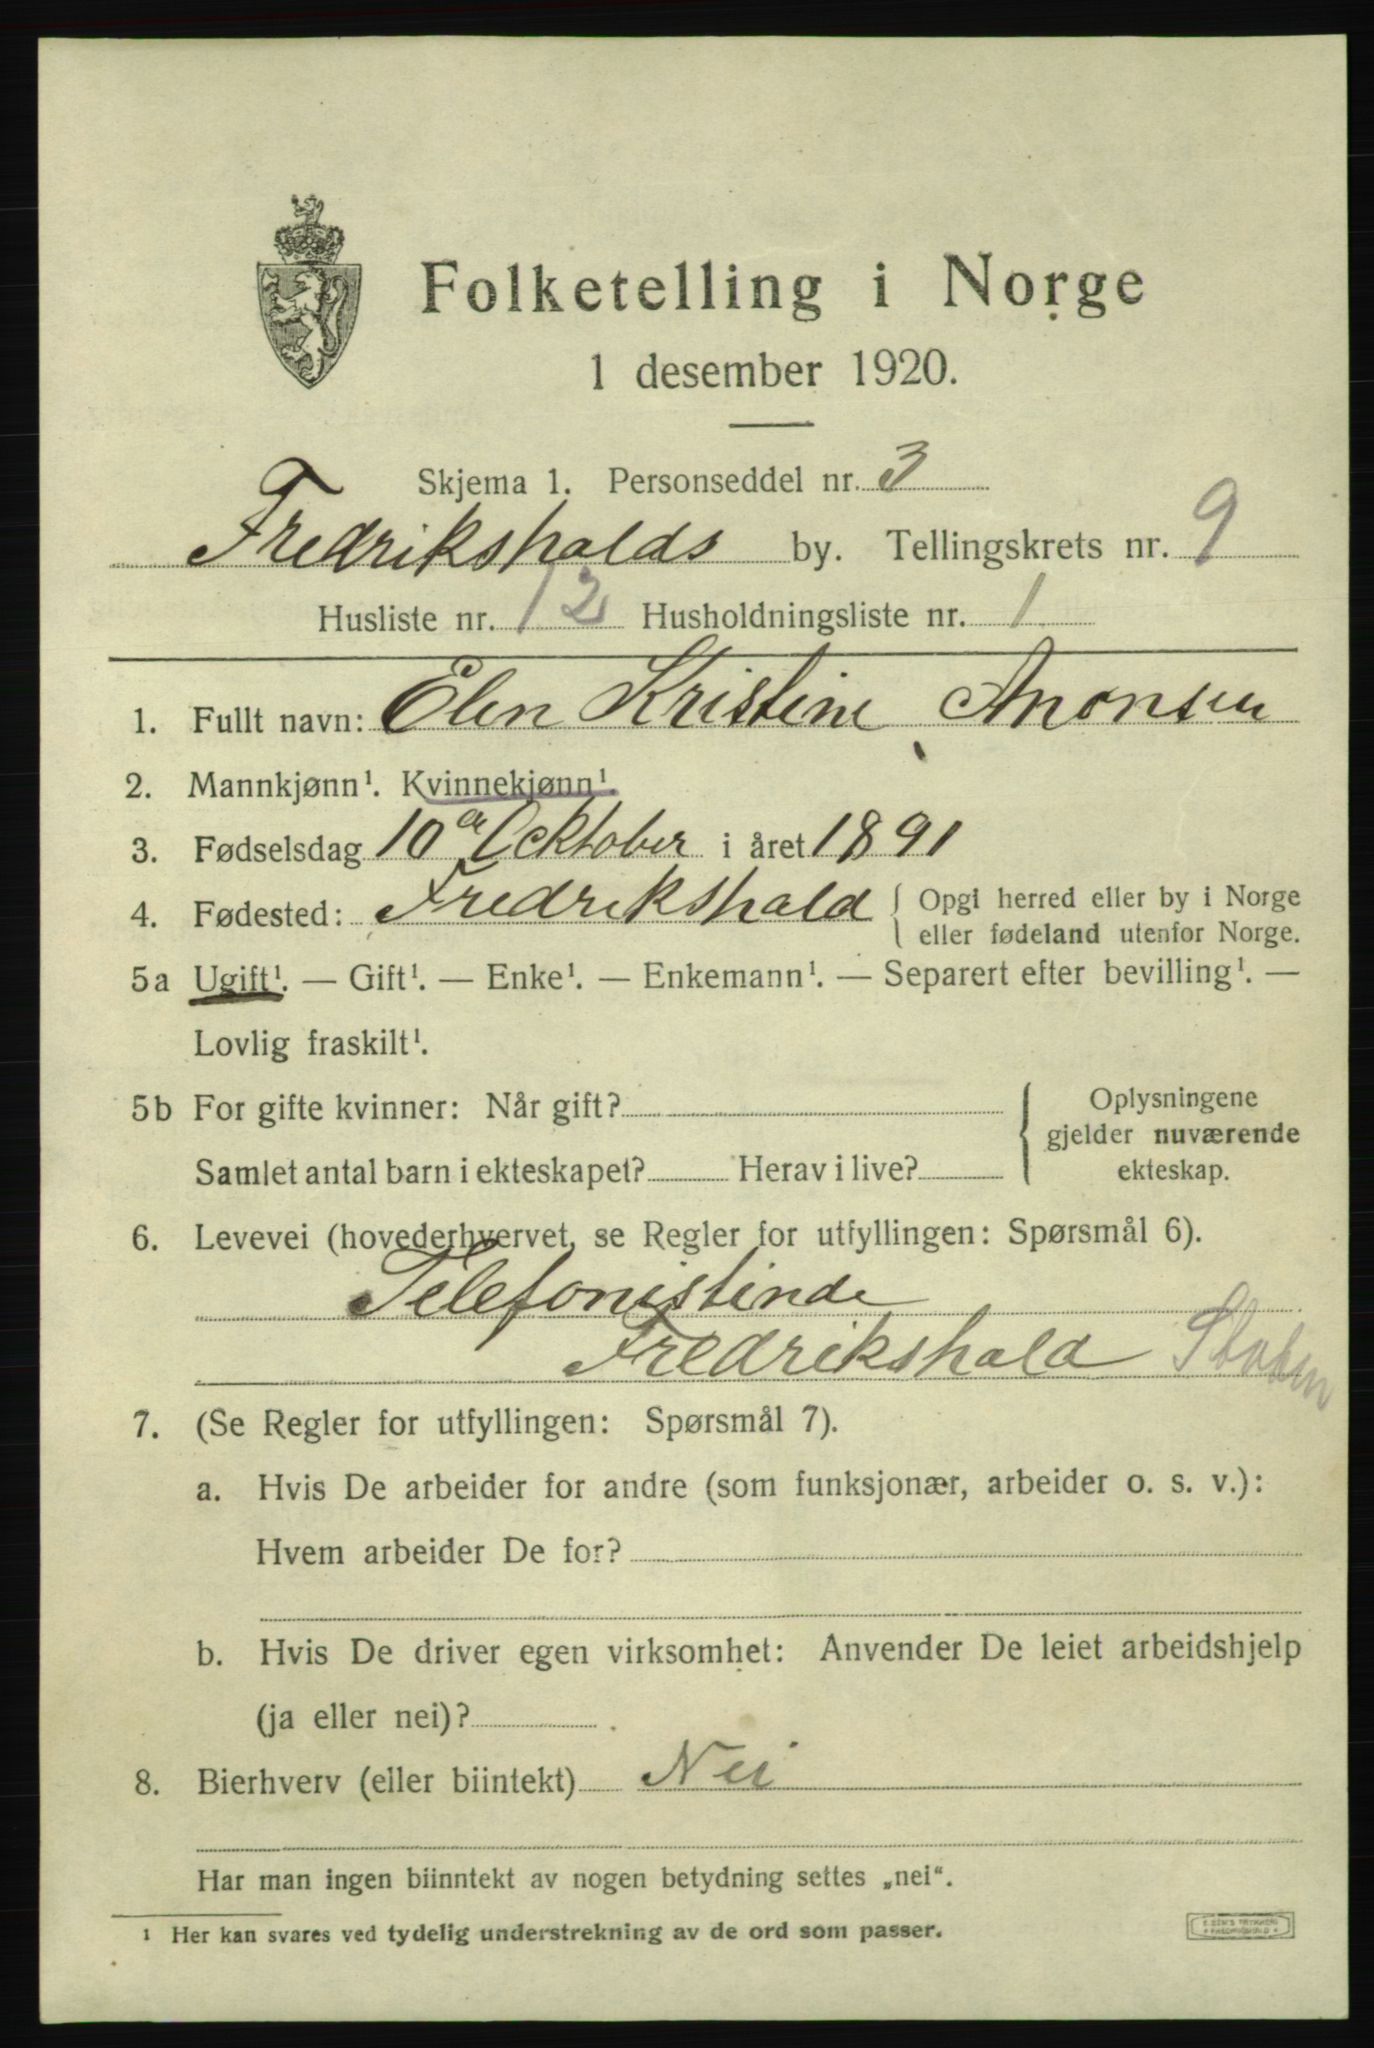 Folketelling i Norge
1 desember 1920.
Skjema 1. Personseddel nr. 3
Fredrikshalds by. Tellingskrets nr. 9
Husliste nr. 12 Husholdningsliste nr. 1
1. Fullt navn: Elen Kristine Anonsen
2. Mannkjønn¹. Kvinnekjønn¹.
3. Fødselsdag 10de Ocktober i året 1891
4. Fødested: Fredrikshald { Opgi herred eller by i Norge
eller fødeland utenfor Norge.
5a Ugift¹. — Gift¹. — Enke¹. — Enkemann¹. — Separert efter bevilling¹. —
Lovlig fraskilt¹.
5b For gifte kvinner: Når gift? { Oplysningene
gjelder nuværende
Samlet antal barn i ekteskapet? Herav i live? ekteskap.
6. Levevei (hovederhvervet, se Regler for utfyllingen: Spørsmål 6).
Telefonistinde
Fredrikshald Staten
7. (Se Regler for utfyllingen: Spørsmål 7).
a. Hvis De arbeider for andre (som funksjonær, arbeider o. s. v.):
Hvem arbeider De for?
b. Hvis De driver egen virksomhet: Anvender De leiet arbeidshjelp
(ja eller nei)?
8. Bierhverv (eller biintekt) Nei
Har man ingen biinntekt av nogen betydning settes „nei“.
¹ Her kan svares ved tydelig understrekning av de ord som passer.